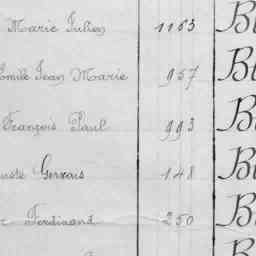 Marie Julien 1163 B
Emile Jean Marie 957 B
François Paul 993 B
Gervais 148 B
Ferdinand 250 B